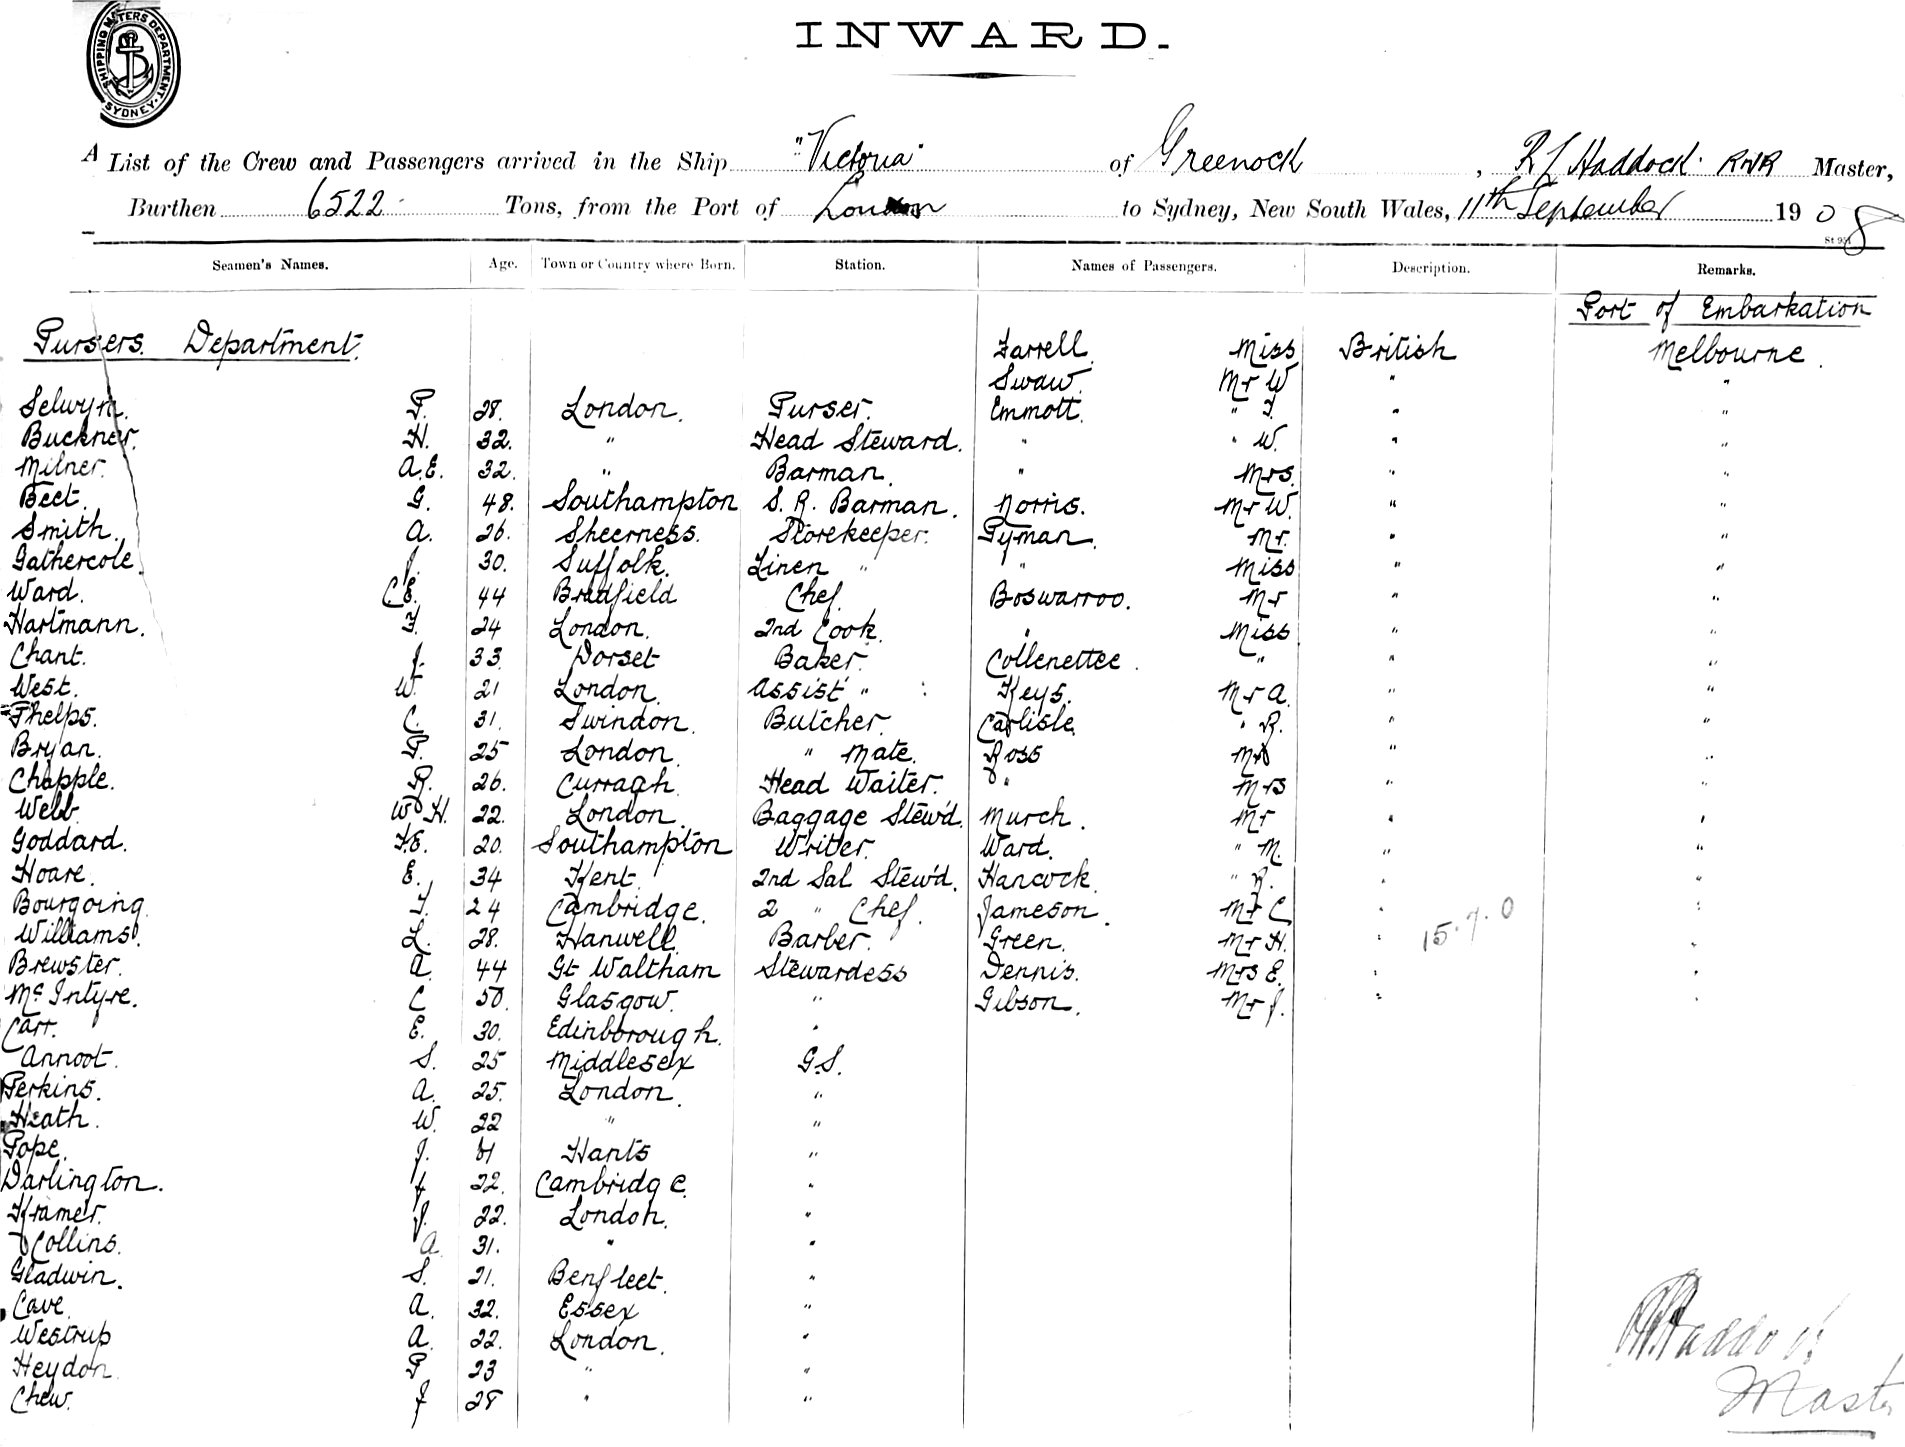 SHIPPING MASTERS DEPARTMENT. SYDNEY.
INWARD.
A List of the Crew and Passengers arrived in the Ship "Victoria" of Greenock, R L Haddock. RNR Master,
Burthen 6522 Tons, from the Port of London to Sydney, New South Wales, 11th September 1908
Seamen's Names. Age. Town or Country where Born. Station. Names of Passengers. Description. Remarks.
Port of Embarkation
Pursers Department. Farrell. Miss British Melbourne.
Swaw. Mr W " "
Selwyn. P. 28. London. Purser. Emmott. " J. " "
Buckner. H. 32. " Head Steward. " " W. " "
Milner. A.E. 32. " Barman. " Mrs. " "
Beet. G. 48. Southampton S. R. Barman. Norris. Mr W. " "
Smith. A. 26. Sheerness. Storekeeper. Pyman. Mr. " "
Gathercole. J. 30. Suffolk. Linen " " Miss " "
Ward. C.E. 44 Bradfield Chef Boswarroo. Mr " "
Hartmann. F. 24 London. 2nd Cook. " Miss " "
Chant. J. 33. Dorset Baker. Collenettee. " " "
West. W. 21 London. Assist " Keys. Mr A. " "
Phelps. C. 31. Swindon. Butcher. Carlisle. " R. " "
Bryan. P. 25 London. " Mate. Ross Mr " "
Chapple. R. 26. Curragh. Head Waiter. " Mrs " "
Webb. W H. 22. London. Baggage Stew'd. Murch. Mr " "
Goddard. F.E. 20. Southampton Writer. Ward. " M. " "
Hoare. E. 34 Kent. 2nd Sal Stew'd. Hancock. " R. " "
Bourgoing. 24 Cambridge. 2 " Chef. Jameson. Mr C " "
15.7.0
Williams. L. 28. Hanwell. Barber. Green. Mr H. " "
Brewster. A. 44 Gt Waltham Stewardess Dennis. Mrs E. "
McIntyre. C 50. Glasgow. " Gibson. Mr J. " "
Carr. E. 30. Edinborough. "
Annoot. S. 25 Middlesex G.S.
Perkins. A. 25. London. "
Heath. W. 22 " "
Pope. J. Hants "
Darlington. J 22. Cambridge. "
Kramer. J. 22. London. "
Collins. A. 31. " "
Gladwin. S. 21. Benfleet. "
Cave. A. 32. Essex "
Westrup A. 22. London. "
Heydon P 23 " "
Chew. J 28 " "
R L Haddock
Master